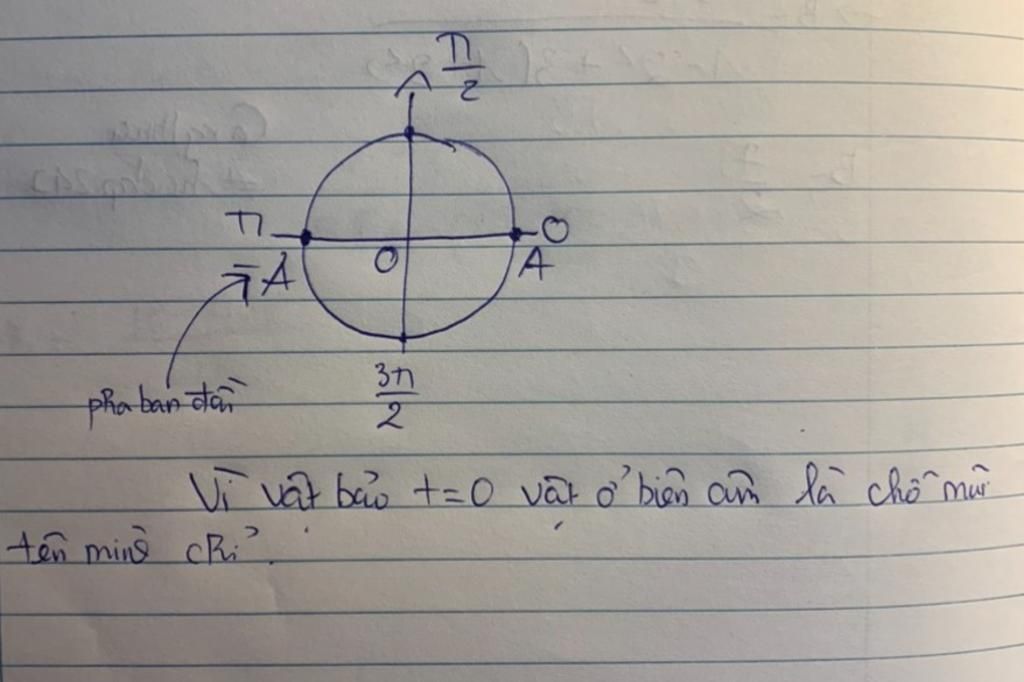 π/2
π
O
O
-A
A
3π/2
pha ban đầu
Vì vật bảo t=0 vật ở biên âm là chỗ mũi
tên mình chỉ.